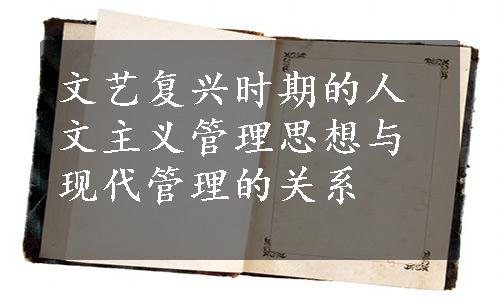 文艺复兴时期的人
文主义管理思想与
现代管理的关系